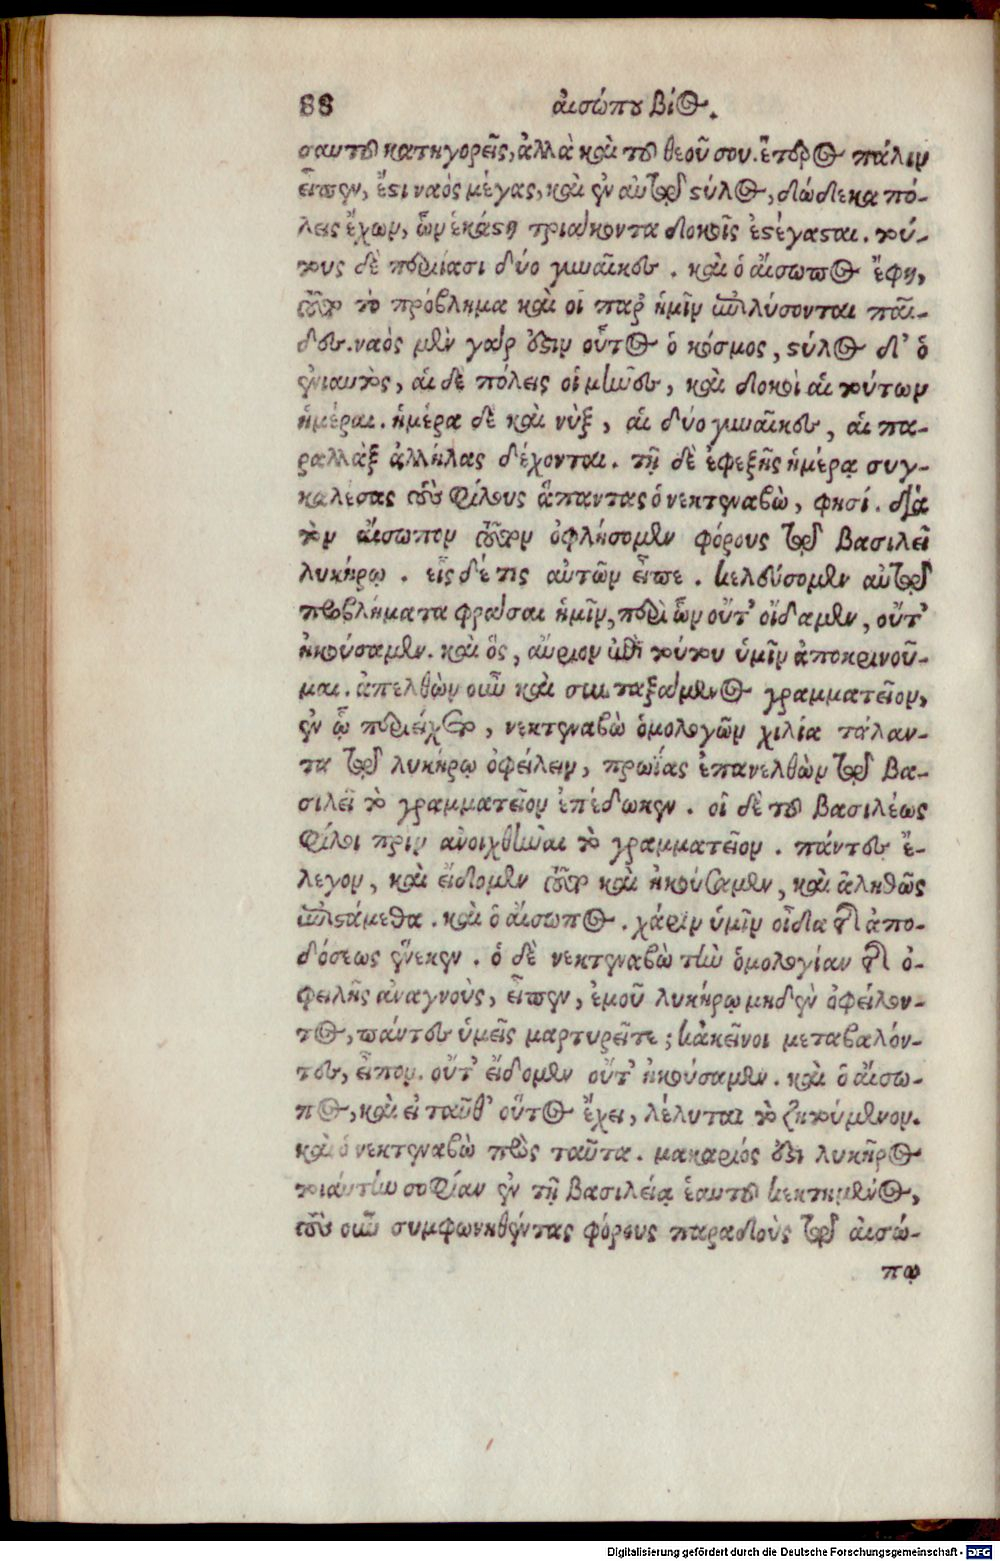 88 αἰσώπου βίος.
σαυτοῦ κατηγορεῖς, ἀλλὰ καὶ τοῦ θεοῦ σου. ἕτερος πάλιν
εἶπεν, ἔστι ναὸς μέγας, καὶ ἐν αὐτῷ στύλος, δώδεκα πό-
λεις ἔχων, ὧν ἑκάστη τριάκοντα δοκοῖς ἐστέγασται. τού-
τους δὲ περιίασι δύο γυναῖκες. καὶ ὁ αἴσωπος ἔφη,
τοῦτο τὸ πρόβλημα καὶ οἱ παρ' ἡμῖν ἐπιλύσονται παῖ-
δες. ναὸς μὲν γάρ ἐστιν οὗτος ὁ κόσμος, στύλος δ' ὁ
ἐνιαυτὸς, αἱ δὲ πόλεις οἱ μῆνες, καὶ δοκοὶ αἱ τούτων
ἡμέραι. ἡμέρα δὲ καὶ νὺξ, αἱ δύο γυναῖκες, αἱ πα-
ραλλὰξ ἀλλήλας δέχονται. τῇ δὲ ἐφεξῆς ἡμέρᾳ συγ-
καλέσας τοὺς φίλους ἅπαντας ὁ νεκτεναβὼ, φησί. διὰ
τὸν αἴσωπον τοῦτον ὀφλήσομεν φόρους τῷ βασιλεῖ
λυκήρῳ. εἷς δέ τις αὐτῶν εἶπε. κελεύσομεν αὐτῷ
προβλήματα φράσαι ἡμῖν, περὶ ὧν οὔτ' οἴδαμεν, οὔτ'
ἠκούσαμεν. καὶ ὃς, αὔριον περὶ τούτου ὑμῖν ἀποκρινοῦ-
μαι. ἀπελθὼν οὖν καὶ συνταξάμενος γραμματεῖον,
ἐν ᾧ περιείχετο, νεκτεναβὼ ὁμολογῶν χιλία τάλαν-
τα τῷ λυκήρῳ ὀφείλειν, πρωΐας ἐπανελθὼν τῷ βα-
σιλεῖ τὸ γραμματεῖον ἐπέδωκεν. οἱ δὲ τοῦ βασιλέως
φίλοι πρὶν ἀνοιχθῆναι τὸ γραμματεῖον. πάντες ἔ-
λεγον, καὶ εἴδομεν τοῦτο καὶ ἠκούσαμεν, καὶ ἀληθῶς
ἐπιστάμεθα. καὶ ὁ αἴσωπος. χάριν ὑμῖν οἶδα τῆς ἀπο-
δόσεως ἕνεκεν. ὁ δὲ νεκτεναβὼ τὴν ὁμολογίαν τῆς ὀ-
φειλῆς ἀναγνοὺς, εἶπεν, ἐμοῦ λυκήρῳ μηδὲν ὀφείλον-
τος, πάντες ὑμεῖς μαρτυρεῖτε; κἀκεῖνοι μεταβαλόν-
τες, εἶπον. οὔτ' εἴδομεν οὔτ' ἠκούσαμεν. καὶ ὁ αἴσω-
πος, καὶ εἰ ταῦθ' οὕτως ἔχει, λέλυται τὸ ζητούμενον.
καὶ ὁ νεκτεναβὼ πρὸς ταῦτα. μακάριός ἐστι λυκῆρος
τοιαύτην σοφίαν ἐν τῇ βασιλείᾳ ἑαυτοῦ κεκτημένος,
τοὺς οὖν συμφωνηθέντας φόρους παραδοὺς τῷ αἰσώ-
πῳ
Digitalisierung gefördert durch die Deutsche Forschungsgemeinschaft - DFG